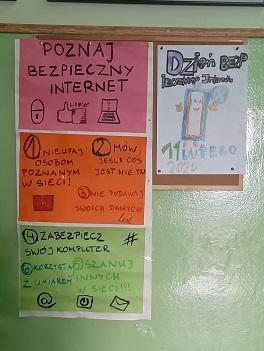 POZNAJ
BEZPIECZNY
INTERNET
LIKE
1 NIE UFAJ
OSOBOM
POZNANYM
W SIECI!
2 MÓW,
JEŚLI COŚ
JEST NIE TAK
3 NIE PODAWAJ
SWOICH DANYCH
4 ZABEZPIECZ
SWÓJ KOMPUTER
#
6 KORZYSTAJ
Z UMIAREM
5 SZANUJ
INNYCH
W SIECI!!!
@
Dzień BEZP
iecznego Internetu
11 LUTEGO
2020